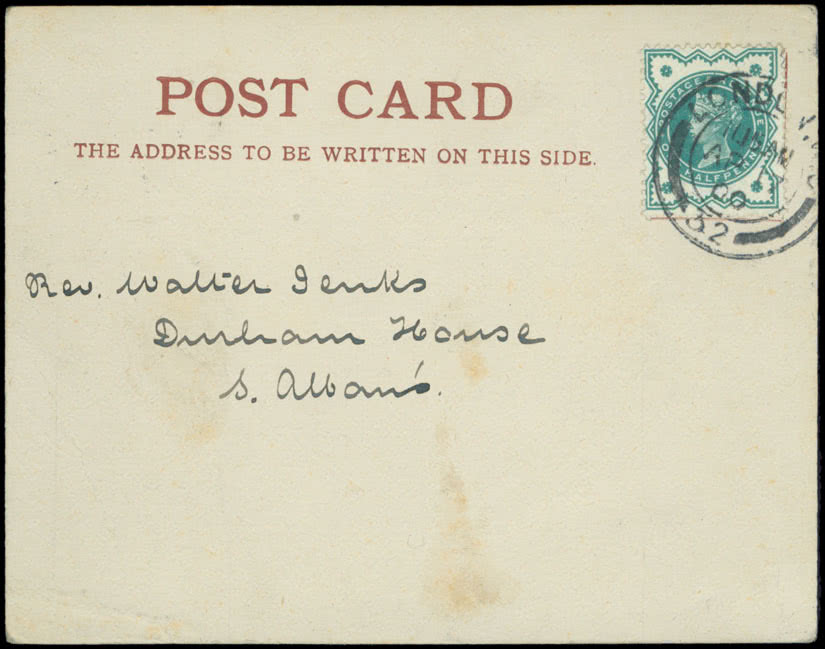 POST CARD
THE ADDRESS TO BE WRITTEN ON THIS SIDE.
POSTAGE
HALFPENN
LONDON
32
Rev. Walter Jenks
Durham House
S. Alban's.